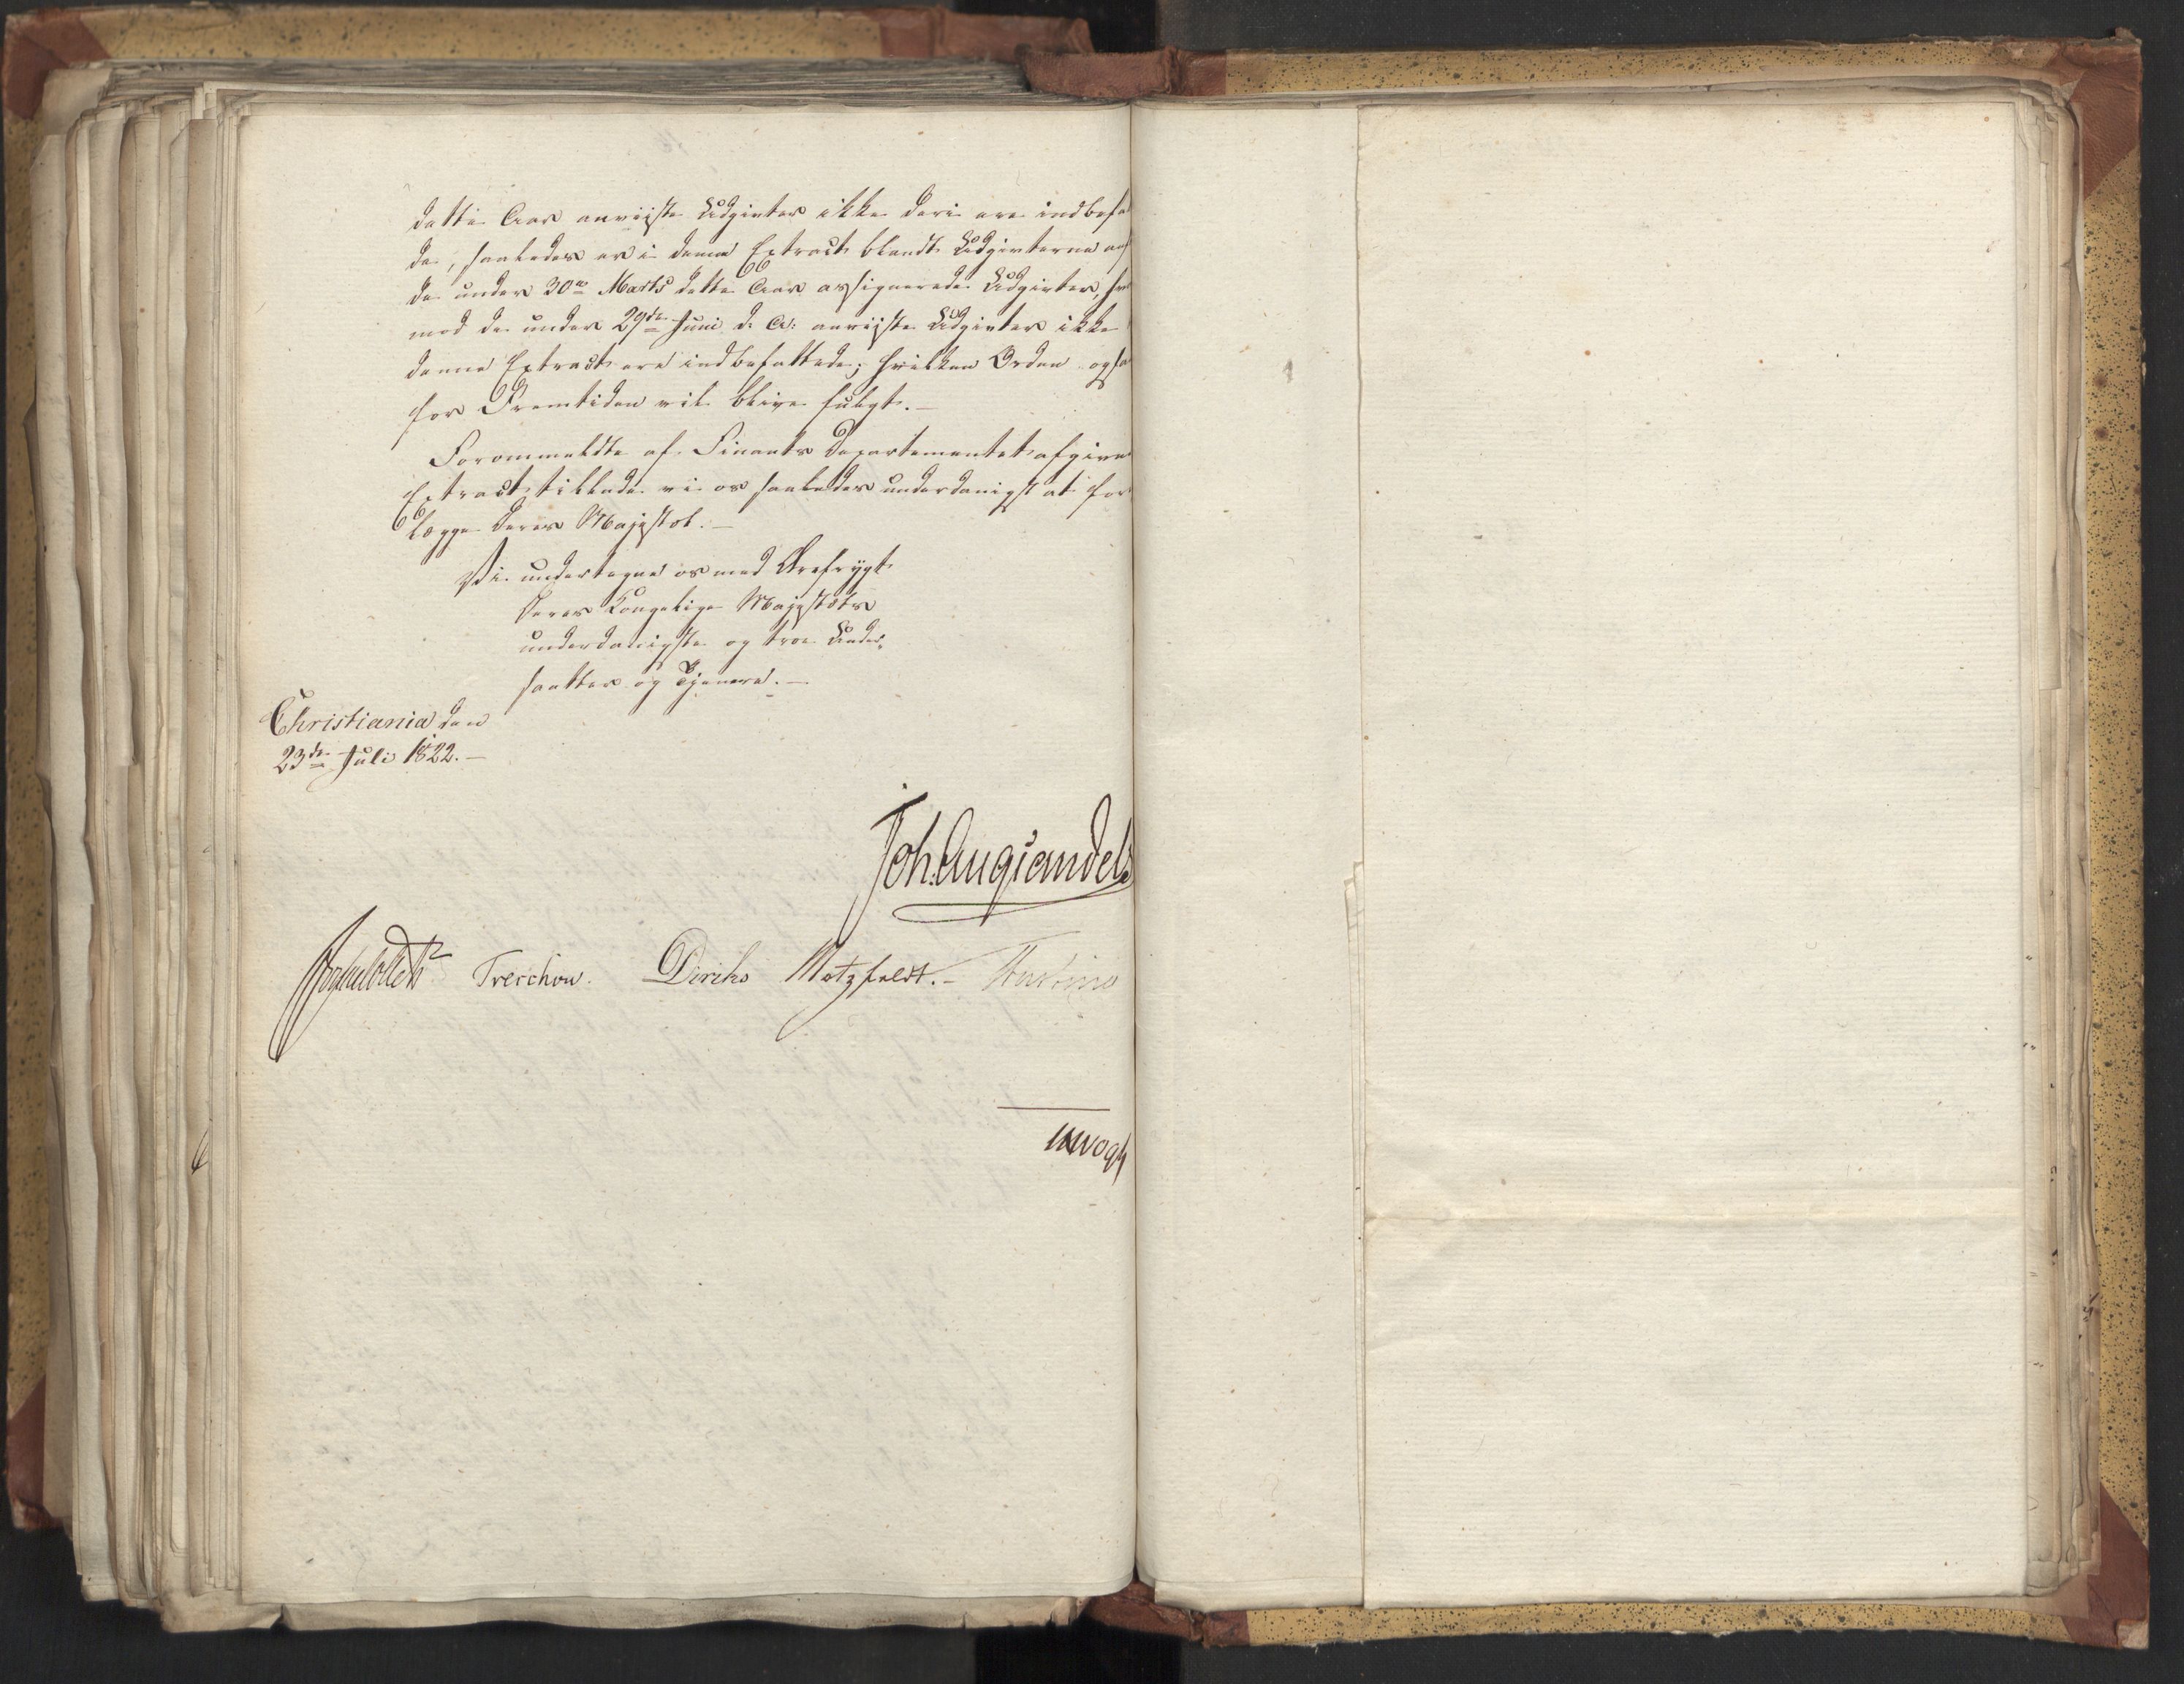 dette Aar anviiste Udgivter ikke deri ere indbefa
de, saaledes er i denne Extract blandt Udgivterne an
de under 30te Marts dette Aar assignerede Udgivter, hvor
mod de under 29de Juni d: A: anviiste Udgivter ikke
denne Extract ere indbefattede; hvilken Orden ogsaa
for Fremtiden vil blive fulgt.—
Forommeldte af Finants Departementet afgivne
Extract tillade vi os saaledes underdanigst at fore
lægge Deres Majestæt.—
Vi undertegne os med Ærefrygt
Deres Kongelige Majestæts
underdanigste og troe Under-
saatter og Tjenere.—
Christiania den
23de Juli 1822.—
Joh: Aug Sandels
Treschow. Diriks Motzfeldt.—